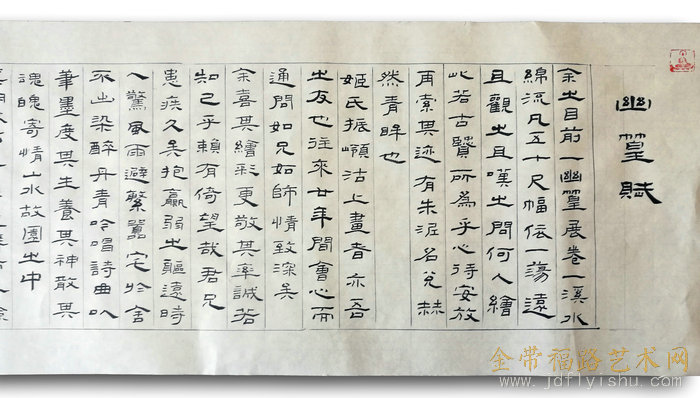 幽篁賦
余之目前一幽篁展卷一溪水
綿流凡五十尺幅伝一蕩遠
且觀之且嘆之問何人繪
此若古賢所為乎心待安放
再索其迹有朱泥名兌赫
然青眸也
姬氏振嶺沽上畫者亦吾
之友也往來廿年間會心而
通問如兄如師情致深矣
余喜其繪彩更敬其率誠若
知己乎賴有倚望哉君兄
患疾久矣抱羸弱之軀遠時
人驚風雨避繁囂宅於舍
不出染醉丹青吟唱詩曲以
筆墨度其生養其神散其
魂魄寄情山水故園之中
金带福路艺术网
www.jdflyishu.com